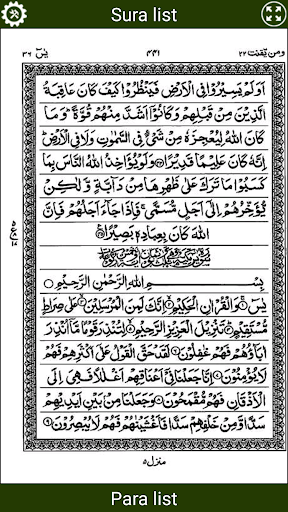 Sura list
ومن يقنت ٢٢
٤٤١
يٰسٓ ٣٦
اَوَلَمْ يَسِيْرُوْا فِي الْاَرْضِ فَيَنْظُرُوْا كَيْفَ كَانَ عَاقِبَةُ
الَّذِيْنَ مِنْ قَبْلِهِمْ وَكَانُوْٓا اَشَدَّ مِنْهُمْ قُوَّةً ؕ وَمَا
كَانَ اللّٰهُ لِيُعْجِزَهٗ مِنْ شَيْءٍ فِي السَّمٰوٰتِ وَلَا فِي الْاَرْضِ ؕ
اِنَّهٗ كَانَ عَلِيْمًا قَدِيْرًا ۝ وَلَوْ يُؤَاخِذُ اللّٰهُ النَّاسَ بِمَا
كَسَبُوْا مَا تَرَكَ عَلٰى ظَهْرِهَا مِنْ دَآبَّةٍ وَّلٰكِنْ
يُّؤَخِّرُهُمْ اِلٰٓى اَجَلٍ مُّسَمًّى ۚ فَاِذَا جَآءَ اَجَلُهُمْ فَاِنَّ
اللّٰهَ كَانَ بِعِبَادِهٖ بَصِيْرًا ۝
بِسْمِ اللّٰهِ الرَّحْمٰنِ الرَّحِيْمِ
يٰسٓ ۝ وَالْقُرْاٰنِ الْحَكِيْمِ ۝ اِنَّكَ لَمِنَ الْمُرْسَلِيْنَ ۝ عَلٰى صِرَاطٍ
مُّسْتَقِيْمٍ ۝ تَنْزِيْلَ الْعَزِيْزِ الرَّحِيْمِ ۝ لِتُنْذِرَ قَوْمًا مَّآ اُنْذِرَ
اٰبَآؤُهُمْ فَهُمْ غٰفِلُوْنَ ۝ لَقَدْ حَقَّ الْقَوْلُ عَلٰٓى اَكْثَرِهِمْ فَهُمْ
لَا يُؤْمِنُوْنَ ۝ اِنَّا جَعَلْنَا فِيْٓ اَعْنَاقِهِمْ اَغْلٰلًا فَهِيَ اِلَى
الْاَذْقَانِ فَهُمْ مُّقْمَحُوْنَ ۝ وَجَعَلْنَا مِنْۢ بَيْنِ اَيْدِيْهِمْ
سَدًّا وَّمِنْ خَلْفِهِمْ سَدًّا فَاَغْشَيْنٰهُمْ فَهُمْ لَا يُبْصِرُوْنَ ۝
منزل ٥
Para list